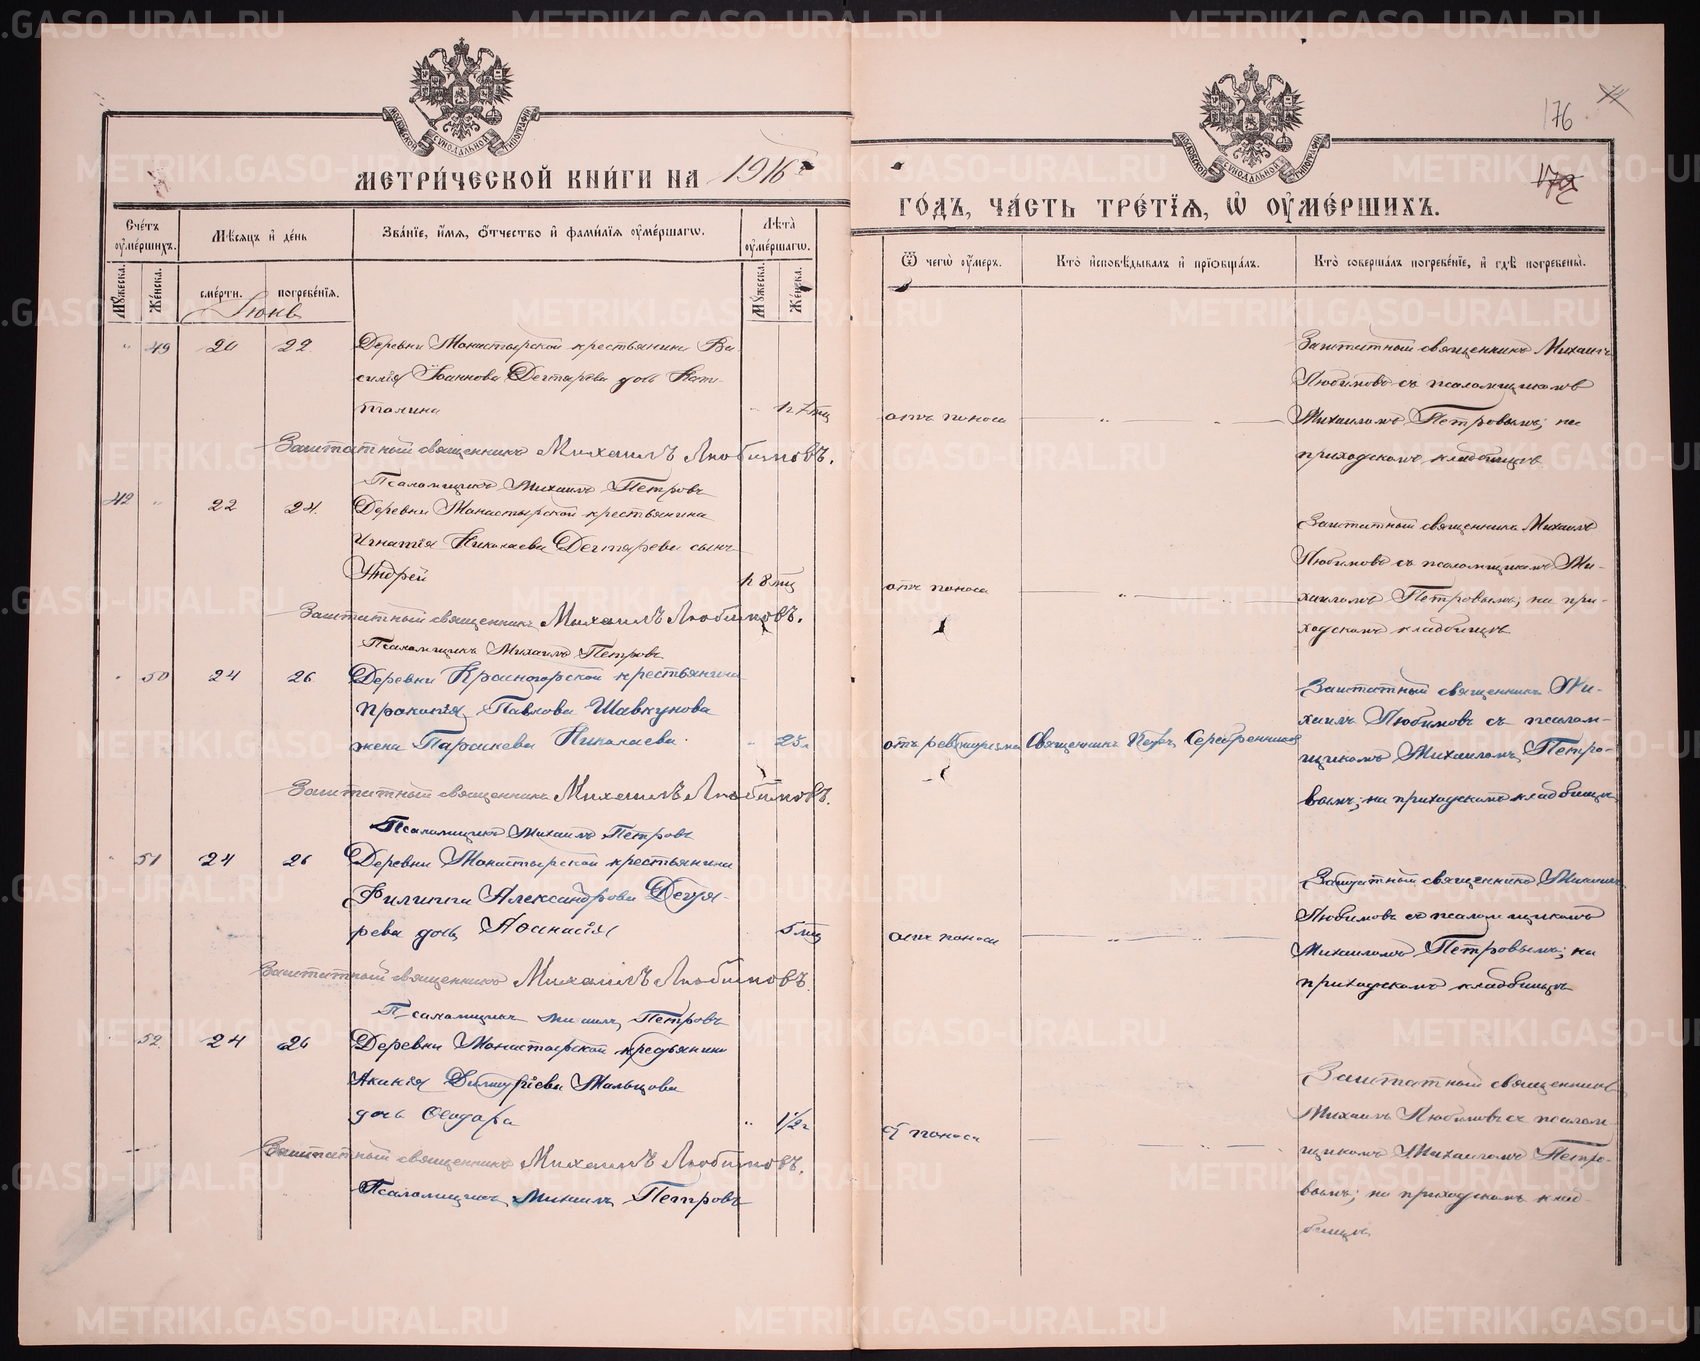 МЕТРИ́ЧЕСКОЙ КНИ́ГИ НА 1916
ГО́ДЪ, ЧА́СТЬ ТРЕ́ТІЯ, Ѡ ОУМЕ́РШИХЪ.
176
Сче́тъ оуме́ршихъ.
Мѣсяцъ и де́нь
Зва́ніе, и́мя, о́тчество и фами́лія оуме́ршагѡ.
Лѣта̀ оуме́ршагѡ.
Ѿ чегѡ̀ оу́меръ.
Кто̀ исповѣ́дывалъ и пріѡбща́лъ.
Кто̀ соверша́лъ погребе́ніе, и гдѣ̀ погребены̀.
Му́жеска.
Же́нска.
сме́рти.
погребе́нія.
Му́жеска.
Же́нска.
Іюнь
49 20 22
Деревни Монастырской крестьянина Ва-
силія Іоаннова Дегтярева дочь Капи-
толина
7 мц
отъ поноса
Заштатный священникъ Михаилъ
Любимовъ съ псаломщикомъ
Михаиломъ Петровымъ; на
приходскомъ кладбищѣ
Заштатный священникъ Михаилъ Любимовъ.
Псаломщикъ Михаилъ Петровъ
42 22 24
Деревни Монастырской крестьянина
Игнатія Николаева Дегтярева сынъ
Андрей
8 мц
отъ поноса
Заштатный священникъ Михаилъ
Любимовъ съ псаломщикомъ Ми-
хаиломъ Петровымъ; на при-
ходскомъ кладбищѣ
Заштатный священникъ Михаилъ Любимовъ.
Псаломщикъ Михаилъ Петровъ
50 24 26
Деревни Красногорской крестьянина
Прокопія Павлова Шавкунова
жена Параскева Николаева
25 л
отъ ревматизма
Священникъ Петръ Серебренниковъ
Заштатный священникъ Ми-
хаилъ Любимовъ съ псалом-
щикомъ Михаиломъ Петро-
вымъ; на приходскомъ кладбищѣ
Заштатный священникъ Михаилъ Любимовъ.
Псаломщикъ Михаилъ Петровъ
51 24 26
Деревни Монастырской крестьянина
Филиппа Александрова Дегтя-
рева дочь Аѳанасія
5 мц
отъ поноса
Заштатный священникъ Михаилъ
Любимовъ съ псаломщикомъ
Михаиломъ Петровымъ; на
приходскомъ кладбищѣ
Заштатный священникъ Михаилъ Любимовъ.
Псаломщикъ Михаилъ Петровъ
52 24 26
Деревни Монастырской крестьянина
Акинѳія Димитріева Мальцова
дочь Ѳеодора
1/2 г
ѿ поноса
Заштатный священникъ
Михаилъ Любимовъ съ псалом-
щикомъ Михаиломъ Петро-
вымъ; на приходскомъ клад-
бищѣ
Заштатный священникъ Михаилъ Любимовъ.
Псаломщикъ Михаилъ Петровъ
METRIKI.GASO-URAL.RU